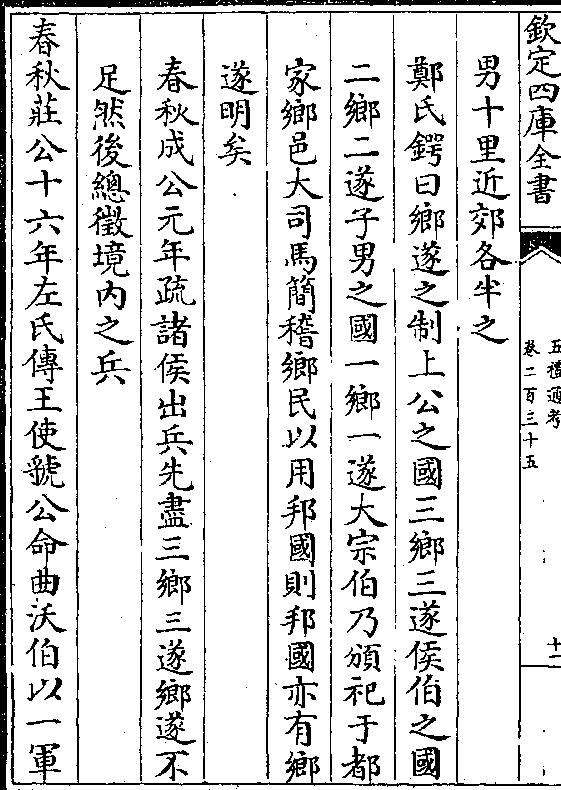 欽定四庫全書
五禮通考
卷二百三十五
十一
男十里近郊各半之
鄭氏鍔曰鄉遂之制上公之國三鄉三遂侯伯之國
二鄉二遂子男之國一鄉一遂大宗伯乃頒祀于都
家鄉邑大司馬簡稽鄉民以用邦國則邦國亦有鄉
遂明矣
春秋成公元年疏諸侯出兵先盡三鄉三遂鄉遂不
足然後總徵境内之兵
春秋莊公十六年左氏傳王使虢公命曲沃伯以一軍